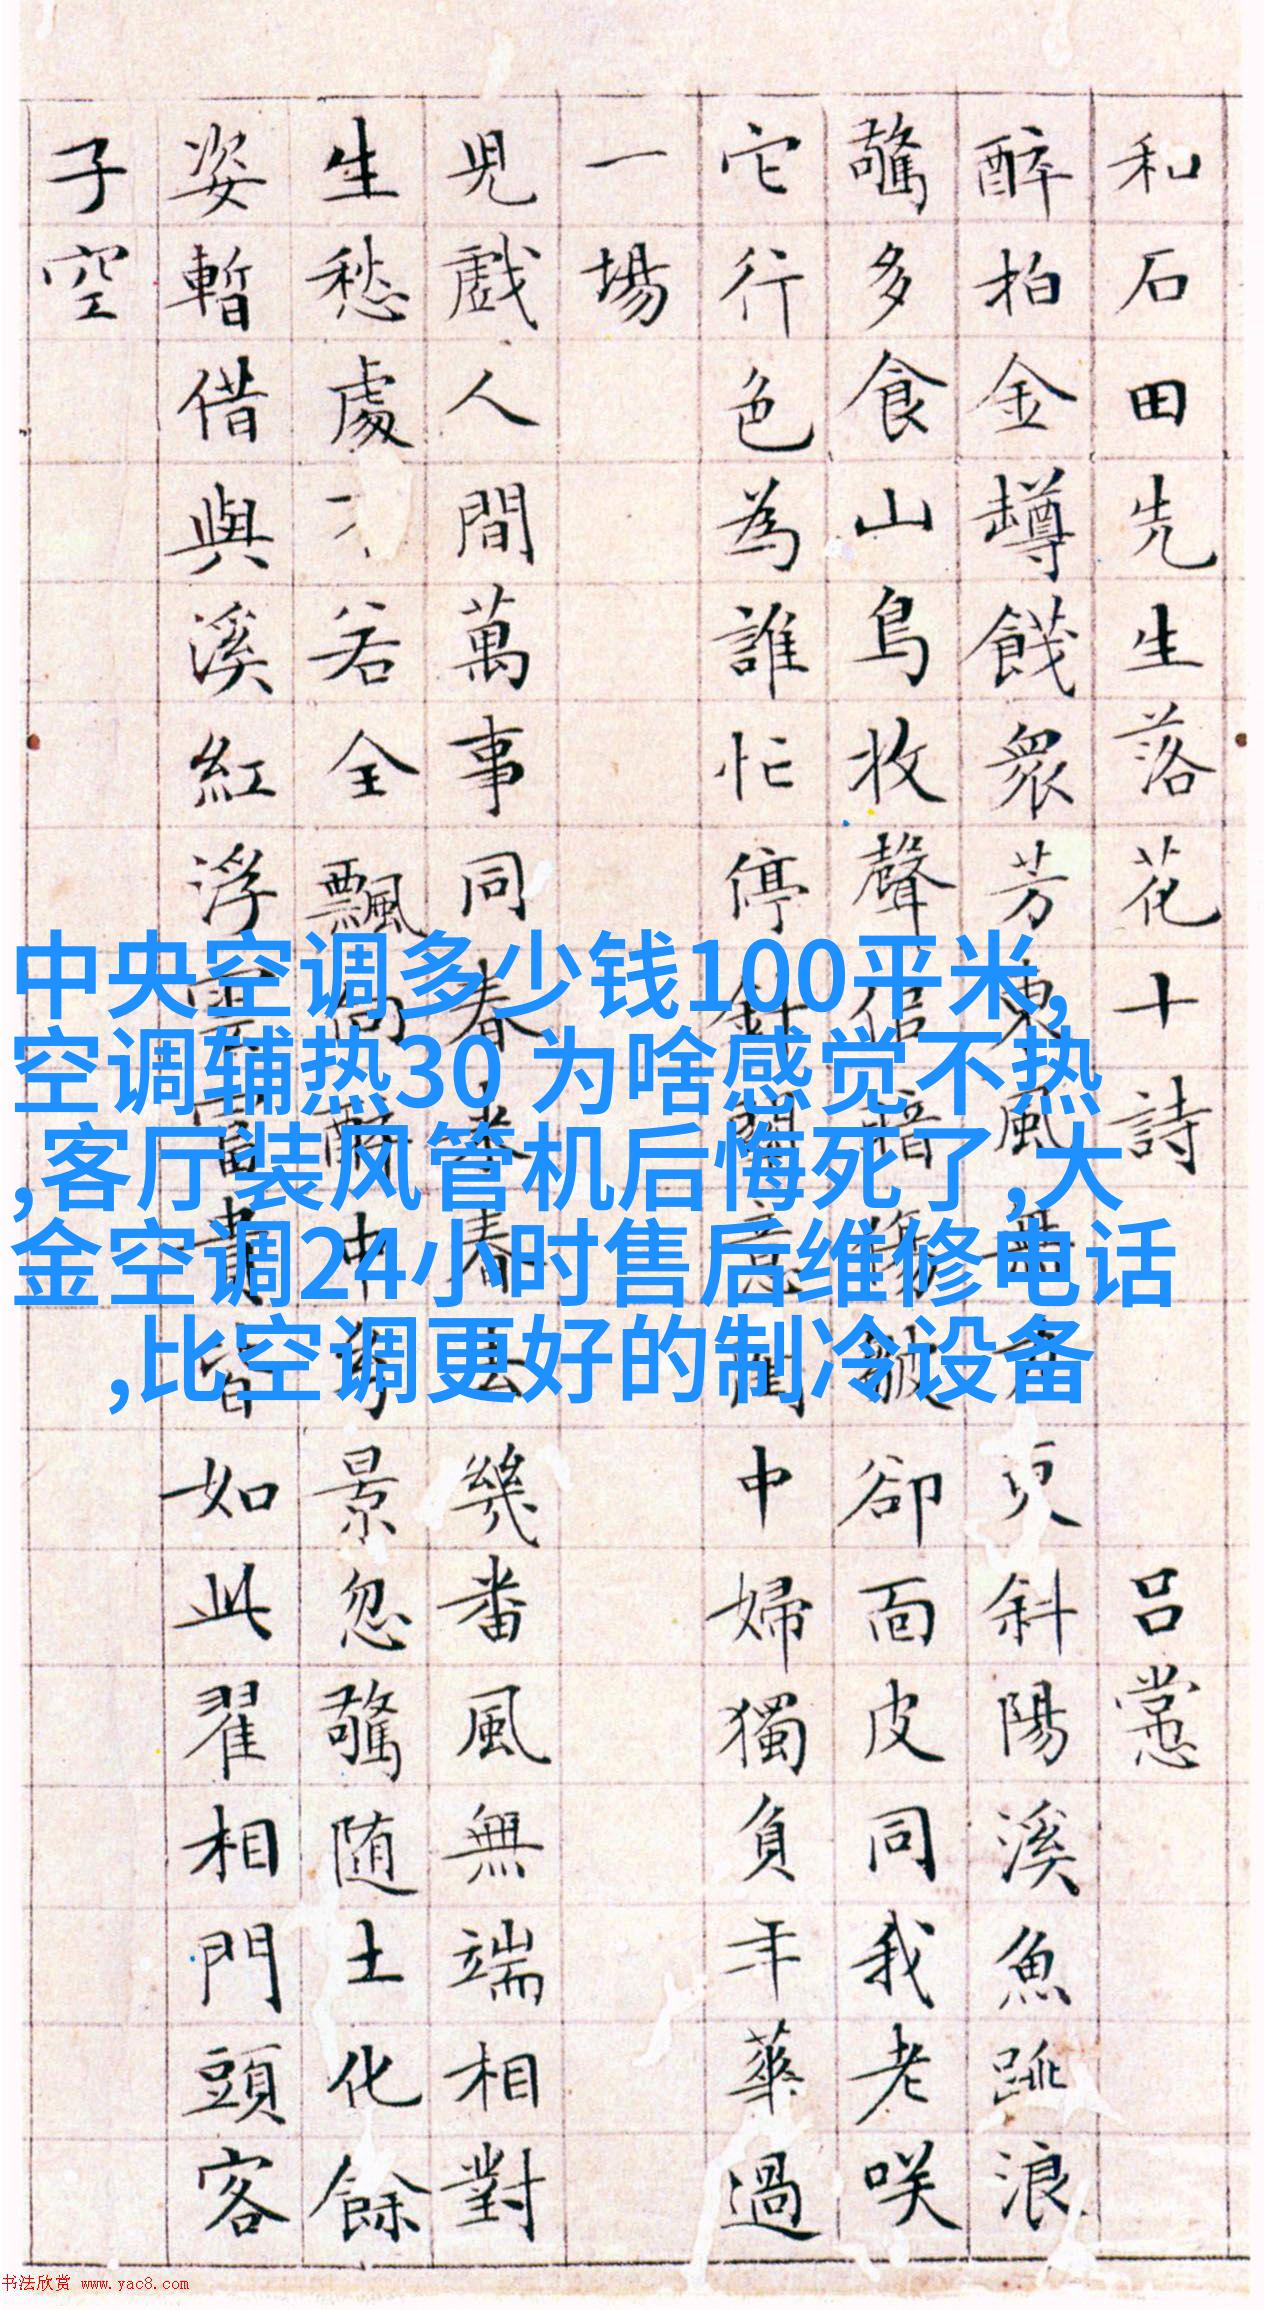 和石田先生落花十詩 呂㦂
醉拍金罇餞眾芳東風無力更斜陽溪魚跳浪
驚多食山鳥收聲倍暗傷皺卻面皮同我老咲
它行色為誰忙停針閒意閨中婦獨負年華過
一場
兒戲人間萬事同春來春去幾番風無端相對
生愁處不若全飄向醉中身景忽驚随土化餘
姿暫借與溪紅浮雲富貴皆如此翟相門頭客
子空
中央空调多少钱100平米,
空调辅热30 为啥感觉不热
,客厅装风管机后悔死了,大
金空调24小时售后维修电话
,比空调更好的制冷设备
书法欣赏 www.yac8.com